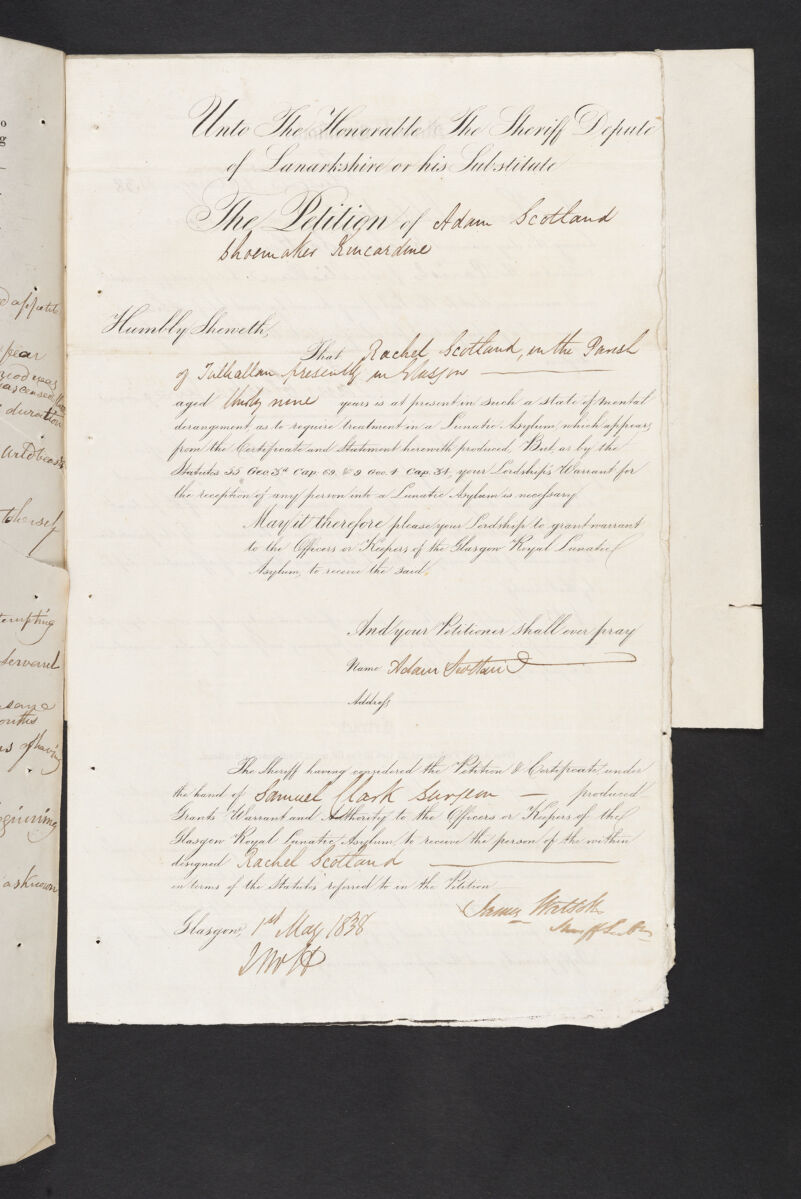 Unto The Honorable The Sheriff Depute
of Lanarkshire or his Substitute
The Petition of Adam Scotland
Shoemaker Kincardine
Humbly Sheweth,
That Rachel Scotland, in the Parish
of Tulliallan presently in Glasgow
aged thirty nine years is at present in such a state of mental
derangement, as to require treatment in a Lunatic Asylum, which appears
from the Certificate and Statement herewith produced, But, as by the
Statutes 55 Geo: 3d Cap: 69. & 9 Geo: 4 Cap: 34, your Lordship's Warrant for
the reception of any person into a Lunatic Asylum is necessary
May it therefore please your Lordship to grant warrant
to the Officers or Keepers of the Glasgow Royal Lunatic
Asylum, to receive the said.
And your Petitioner shall ever pray
Name Adam Scotland
Address
The Sheriff having considered the Petition & Certificate under
the hand of Samuel Clark Surgeon — produced
Grants Warrant and Authority to the Officers or Keepers of the
Glasgow Royal Lunatic Asylum, to receive the person of the within
designed Rachel Scotland
in terms of the Statutes referred to in the Petition
Glasgow, 1st May 1838
ed appetite
pear
duration
to herself
tempting
served
same
months
s of having
beginning
as known